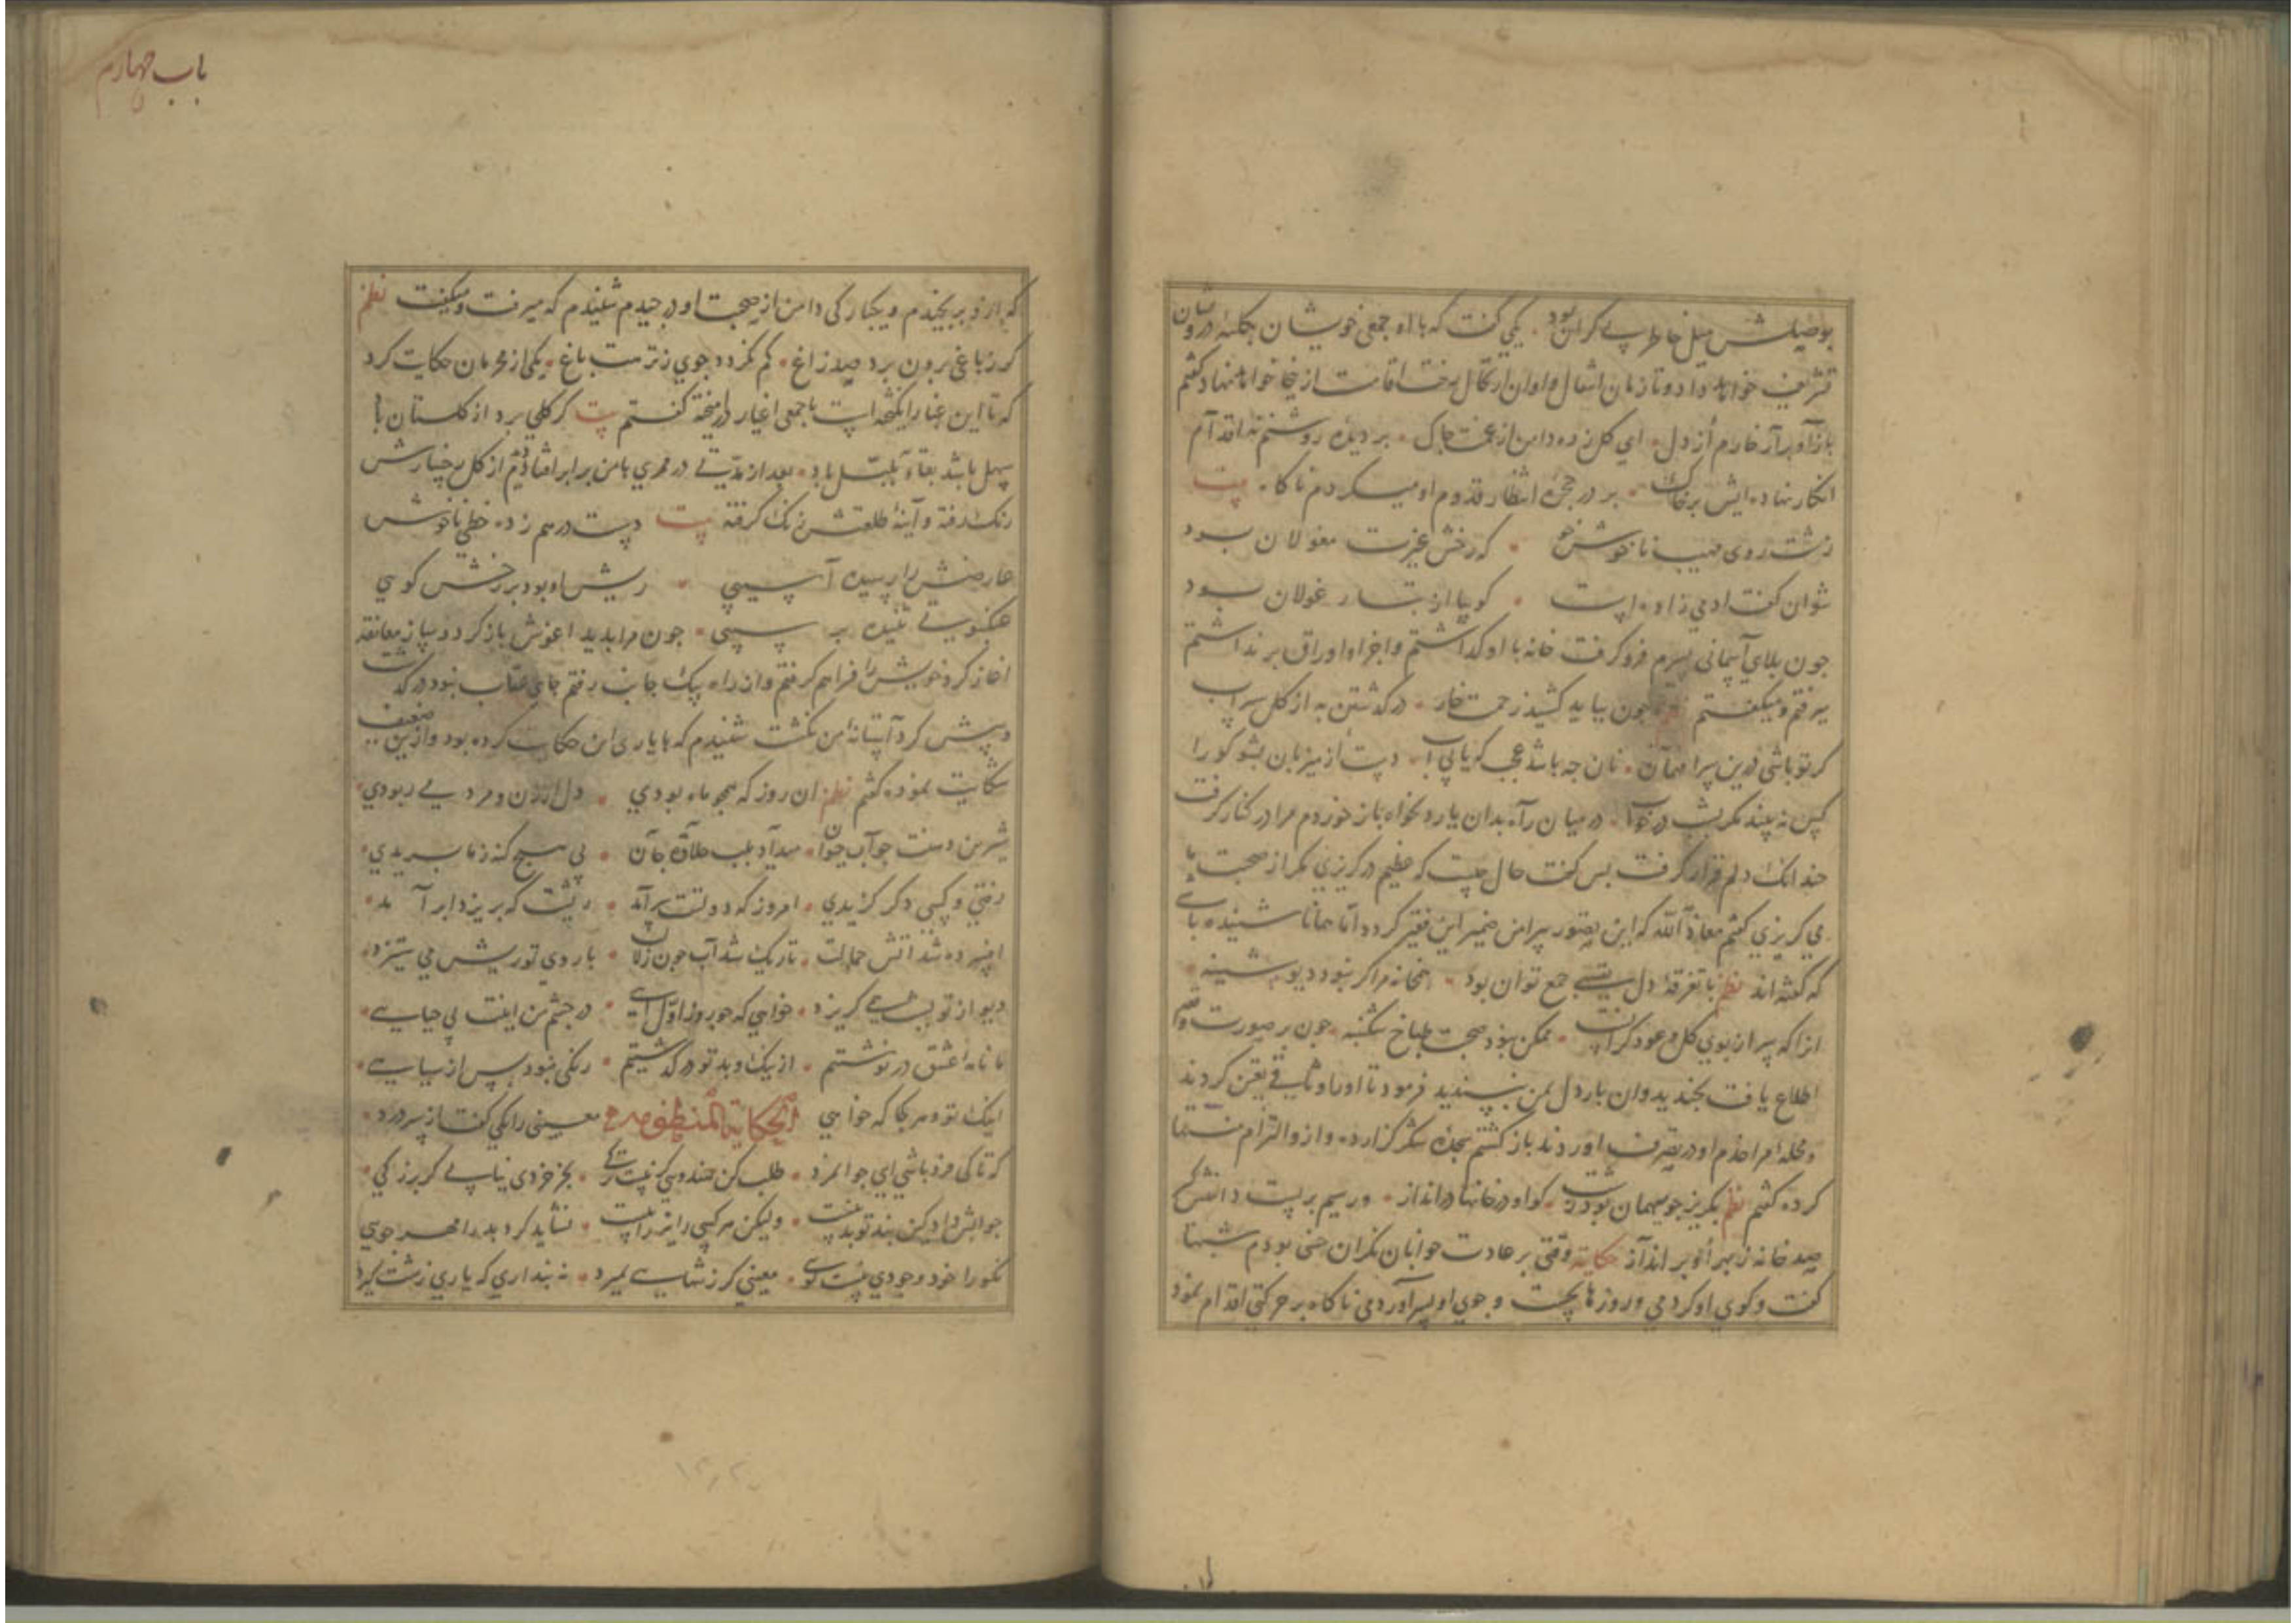 بوصلش میل خاطر بی کران بود یکی گفت که با او جمعی خویشان بکلبه درویشان
تشریف خواهد داد و تا زمان اشغال و اوان ارتحال رخت اقامت از نجا نخواهد نهاد گفتم
باز آ و برآر خارم از دل ای گل زده دامن از غمت چاک بر دیده روشنم نه اقدام
انگار نهاده ایش بر خاک بر در حجره انتظار قدوم او میکردم ناگاه بیت
زشت روی مهیب ناخوش خو که رخش غیرت مغولان بود
نتوان گفت ادمی زاده است گوییا از تبار غولان بود
چون بلای آسمانی بسرم فرو گرفت خانه با او گذاشتم و اجزا و اوراق برنداشتم
میرفتم و میگفتم چون بباید کشید زحمت خار در گذشتن به از گل سیراب
گر تو باشی درین سرا مهمان نان چه باشد عجب گر یابی آب دست از میزبان بشو کو را
کس نبیند مگر بشب در خواب در میان راه بدان یار دلخواه باز خوردم مرا در کنار گرفت
چندانک دلم قرار گرفت پس گفت حال چیست که عظیم در گریزی مگر از صحبت ما
می گریزی گفتم معاذ الله که این تصور پیرامن ضمیر این فقیر گردد اما همانا شنیده باشی
که گفته اند نظم با تفرقه دل بسی جمع توان بود همخانه مرا گر نبود دیو شینه
انرا که سر از بوی گل و عود گرانست ممکن نبود صحبت طباخ شکنبه چون بر صورت واقعه
اطلاع یافت بخندید و ان بار دل بمن نپسندید فرمود تا او را وثاقی تعین کردند
و محله مرا خدم او در تصرف اوردند باز گشتم سجده شکر گزارده و از و التزام منتها
کرده گفتم نظم بگریز چو میهمان بود زشت کو او در خانها در انداز ور سیم بر یست دانش
صد خانه ز بهر او برانداز حکایة وقتی بر عادت جوانان نگران حسنی بودم شبها
گفت و گوی او کردمی و روزها بجست و جوی او بسر آوردمی ناگاه بر حرکتی اقدام نمود
باب چهارم
که ازو برنجیدم و یکبارگی دامن از صحبت او در چیدم شنیدم که میرفت و میگفت نظم
گر ز باغی برون برد صد زاغ کم نگردد جوی ز نزهت باغ یکی از محرمان حکایت کرد
که تا این غبار انگیخته است با جمعی اغیار در آمیخته گفتم بیت گر گلی برد از گلستان باد
سهل باشد بقاء بلبل باد بعد از مدتی در ممری با من برابر افتاد دیدم از گل رخسارش
رنگ رفته و آینه طلعتش زنگ گرفته بیت دست در هم زده خطی ناخوش
عارضش را رسیده آسیبی ریش او بود بر رخش گویی
عنکبوتی تنیده بر سیبی چون مرا بدید اغوش باز کرد و ساز معانقه
اغاز کرد خویش را فراهم گرفتم و ازان راه بیک جانب رفتم جای عتاب نبود درگذشت
و پیش گرد آستانه من نگشت شنیدم که با یاری این حکایت کرده بود و ازین ضعیف
شکایت نموده گفتم نظم ان روز که همچو ماه بودی دل از زن و مرد می ربودی
شیرین دهنت چو آب حیوان میداد بلب حلاوت جان بی هیچ گنه ز ما بریدی
رفتی و کسی دگر گزیدی امروز که دولتت سرآمد ریشت که بریز دابر آمد
افسرده شد اتش جمالت تاریک شد آب چون زلال با روی تو ریش می ستیزد
دیو از تو بشب همی گریزد خواهی که چو روز اول آیی در چشم من اینت بی حیایی
ما نامه عشق در نوشتیم از نیک و بد تو در گذشتیم رنگی نبود پس از سیاهی
اینک تو و هر کجا که خواهی الحکایة المنظومة معینی را یکی گفت از سر درد
که تا کی فرد باشی ای جوانمرد طلب کن همدمی بجز خردی نیابی گر بزرگی
جوابش داد کین پند تو پندست ولیکن هر کسی را نیز رایست نشاید کرد بد را مهر جویی
نکو را خود وجودی نیست گویی معینی گر ز تنهایی بمیرد نه پنداری که یاری زشت گیرد